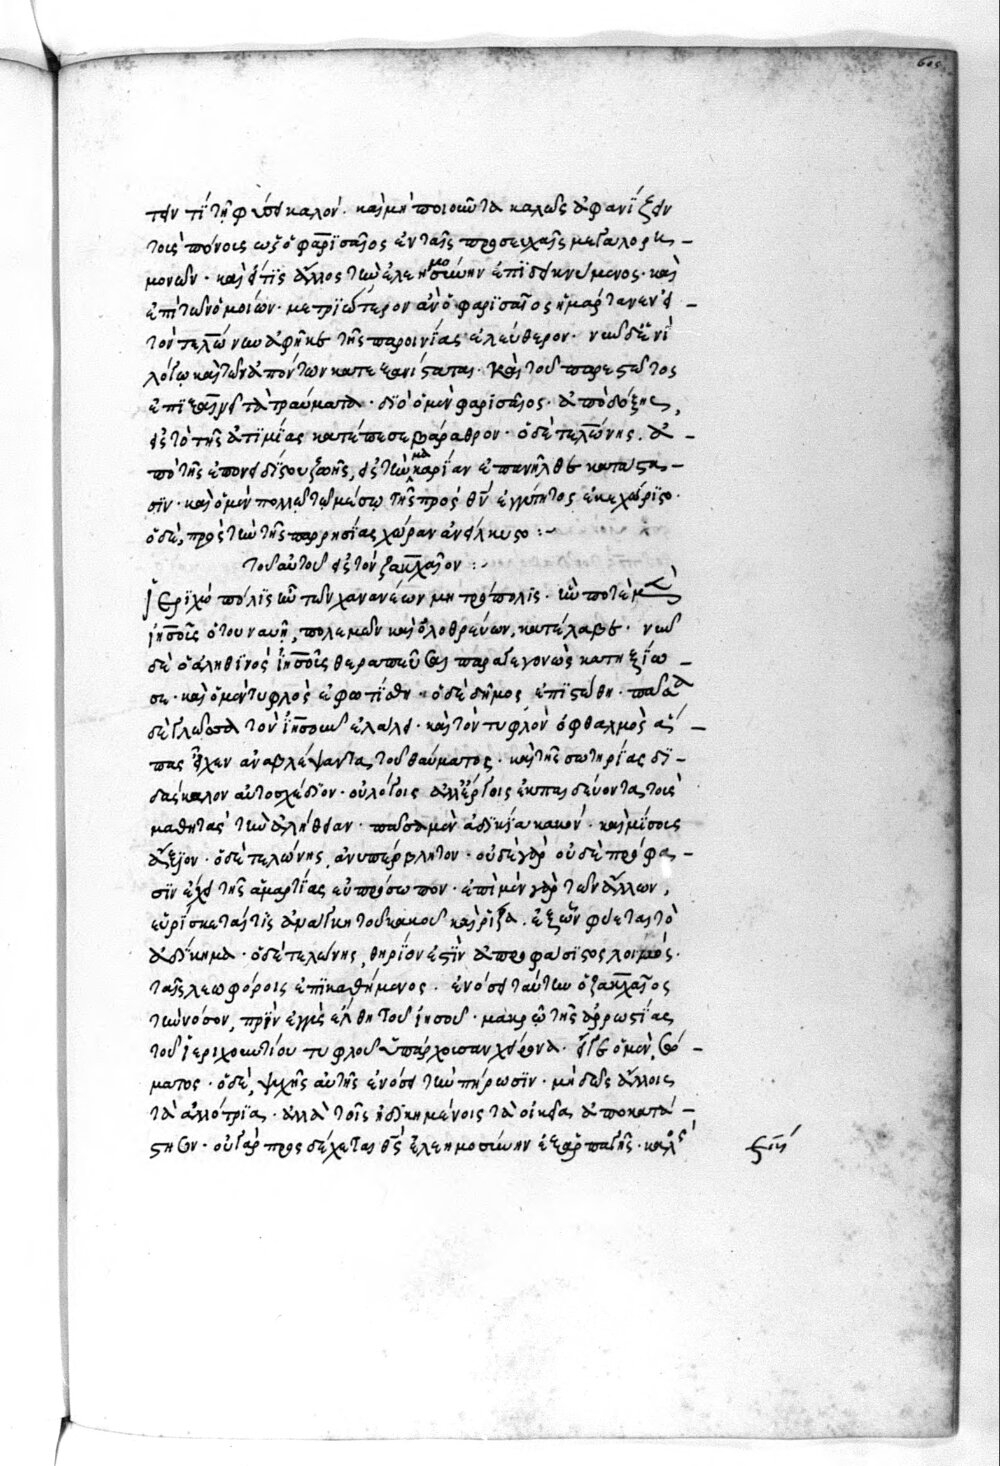 605
τειν τῇ τῇ φύσει καλόν· καὶ μὴ ποιοῦντα καλῶς ἀφανίζειν
τοὺς πόνους ὡς ὁ φαρισαῖος ἐν ταῖς προσευχαῖς μεγαλορη-
μονῶν· καὶ εἴ τις ἄλλος τὴν ἐλεημοσύνην ἐπιδεικνύμενος· καὶ
ἐπὶ τῶν ὁμοίων· μετριώτερον ἂν ὁ φαρισαῖος ἡμάρτανεν εἰ
τὸν τελώνην ἀφῆκε τῆς παροινίας ἐλεύθερον· νῦν δὲ ἑνὶ
λόγῳ καὶ τῶν ἀπόντων κατεξανίσταται· καὶ τοῦ παρεστῶτος
ἐπιξαίνει τὰ τραύματα· διὸ ὁ μὲν φαρισαῖος· ἀπὸ δόξης,
εἰς τὸ τῆς ἀτιμίας κατέπεσε βάραθρον· ὁ δὲ τελώνης· ἀ-
πὸ τῆς ἐπονειδίστου ζωῆς, εἰς τὴν μακαρίαν ἐπανῆλθε κατάστα-
σιν· καὶ ὁ μὲν πολλῷ τῷ μέσῳ τῆς πρὸς θν ἐγγύτητος ἐκεχώριστο·
ὁ δὲ, πρὸς τὴν τῆς παρρησίας χώραν ἀνείλκυστο :-
τοῦ αὐτοῦ εἰς τὸν ζακχαῖον :-
Ἱεριχὼ πόλις ἦν τῶν χανανέων μητρόπολις· ἣν ποτὲ μὲν
ἰησοῦς ὁ τοῦ ναυῆ, πολεμῶν καὶ ὀλοθρεύων, κατέλαβε· νῦν
δὲ ὁ ἀληθινὸς ἰησοῦς θεραπεῦσαι παραγεγονὼς κατηξίω-
σε· καὶ ὁ μὲν τυφλὸς ἐφωτίσθη· ὁ δὲ δῆμος ἐπιστώθη· πᾶσα
δὲ γλῶσσα τὸν ἰησοῦν ἐλάλει· καὶ τὸν τυφλὸν ὀφθαλμὸς ἅ-
πας εἶχεν ἀναβλέψαντα, τοῦ θαύματος· καὶ τῆς σωτηρίας δι-
δάσκαλον αὐτοσχέδιον· οὐ λόγοις ἀλλ' ἔργοις ἐκπαιδεύοντα, τοὺς
μαθητὰς τὴν ἀλήθειαν· πᾶσα μὲν ἀδικία κακόν· καὶ μίσους
ἄξιον· ὁ δὲ τελώνης, ἀνυπέρβλητον· οὐδὲ γὰρ οὐδὲ πρόφα-
σιν ἔχει τῆς ἁμαρτίας εὐπρόσωπον· ἐπὶ μὲν γὰρ τῶν ἄλλων,
εὑρίσκεται τις ἀνάγκη τοῦ κακοῦ καὶ ῥίζα· ἐξ ὧν φύεται τὸ
ἀδίκημα· ὁ δὲ τελώνης, θηρίον ἐστὶν ἀπροφάσιστος λοιμός·
ταῖς λεωφόροις ἐπικαθήμενος· ἐνόσει ταύτην ὁ ζακχαῖος
τὴν νόσον, πρὶν ἐγγὺς ἐλθῃ τοῦ ἰησοῦ· μακρῷ τῆς ἀρρωστίας
τοῦ ἱεριχουντίου τυφλοῦ ὑπάρχουσαν χείρονα· εἶχε ὁ μὲν, σώ-
ματος· ὁ δὲ, ψυχῆς αὐτῆς ἐνόσει τὴν πήρωσιν· μὴ δὸς ἄλλοις
τὰ ἀλλότρια· ἀλλὰ τοῖς ἠδικημένοις τὰ οἰκεῖα ἀποκατά-
στησον· οὐ γὰρ προσδέχεται θς ἐλεημοσύνην ἐξ ἁρπαγῆς· καλὸς